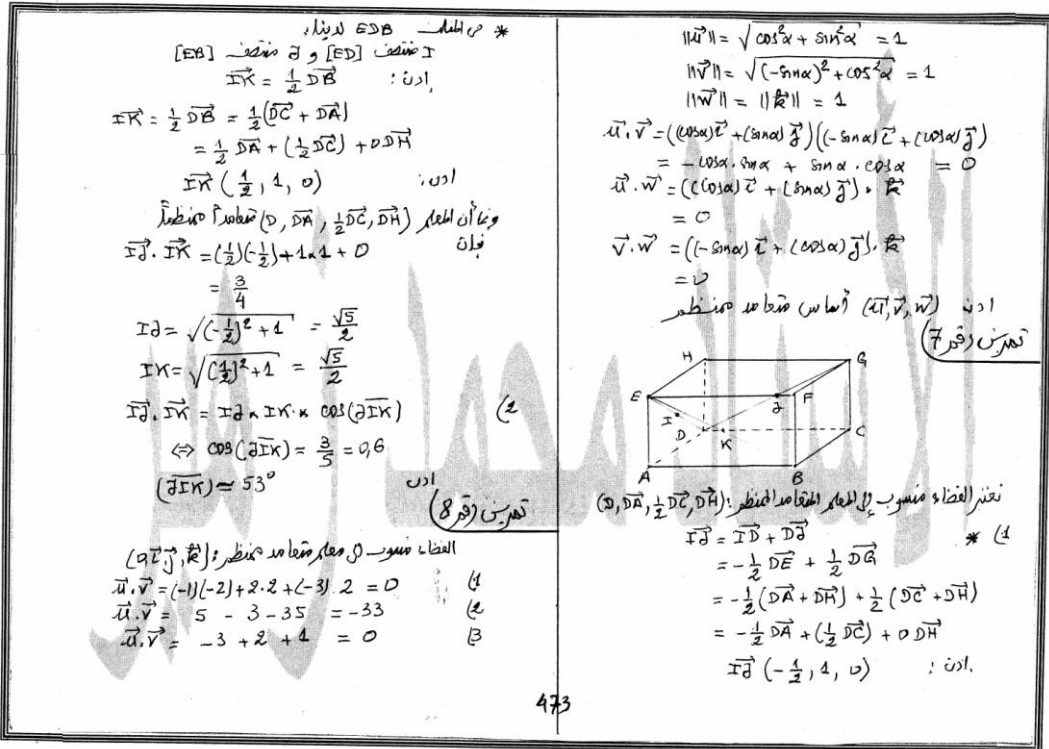 ||u⃗|| = √(cos²α + sin²α) = 1
||v⃗|| = √((-sinα)² + cos²α) = 1
||w⃗|| = ||k⃗|| = 1
u⃗.v⃗ = ((cosα)i⃗ + (sinα)j⃗)((-sinα)i⃗ + (cosα)j⃗)
= -cosα.sinα + sinα.cosα = 0
u⃗.w⃗ = ((cosα)i⃗ + (sinα)j⃗).k⃗
= 0
v⃗.w⃗ = ((-sinα)i⃗ + (cosα)j⃗).k⃗
= 0
اذن (u⃗,v⃗,w⃗) أساس متعامد ممنظم
تمرين رقم 7
H G
E J F
I D K C
A B
نعتبر الفضاء منسوب إلى المعلم المتعامد الممنظم: (D, DA⃗, ½DC⃗, DH⃗)
1) * IJ⃗ = ID⃗ + DJ⃗
= -½ DE⃗ + ½ DG⃗
= -½(DA⃗ + DH⃗) + ½(DC⃗ + DH⃗)
= -½ DA⃗ + (½DC⃗) + 0DH⃗
اذن: IJ⃗ (-½, 1, 0)
* في المثلث EDB لدينا:
I منتصف [ED] و J منتصف [EB]
إذن: IK⃗ = ½ DB⃗
IK⃗ = ½ DB⃗ = ½(DC⃗ + DA⃗)
= ½ DA⃗ + (½DC⃗) + 0DH⃗
اذن: IK⃗ (½, 1, 0)
وبما أن المعلم (D, DA⃗, ½DC⃗, DH⃗) متعامدا ممنظماً
فإن IJ⃗.IK⃗ = (½)(-½) + 1×1 + 0
= 3/4
IJ = √((-½)² + 1) = √5/2
IK = √((½)² + 1) = √5/2
2) IJ⃗.IK⃗ = IJ × IK × cos(JIK)
⇔ cos(JIK) = 3/5 = 0,6
اذن (JIK) ≃ 53°
تمرين رقم 8
الفضاء منسوب إلى معلم متعامد ممنظم: (O,i⃗,j⃗,k⃗)
1) u⃗.v⃗ = (-1)(-2) + 2.2 + (-3).2 = 0
2) u⃗.v⃗ = 5 - 3 - 35 = -33
3) u⃗.v⃗ = -3 + 2 + 1 = 0
473